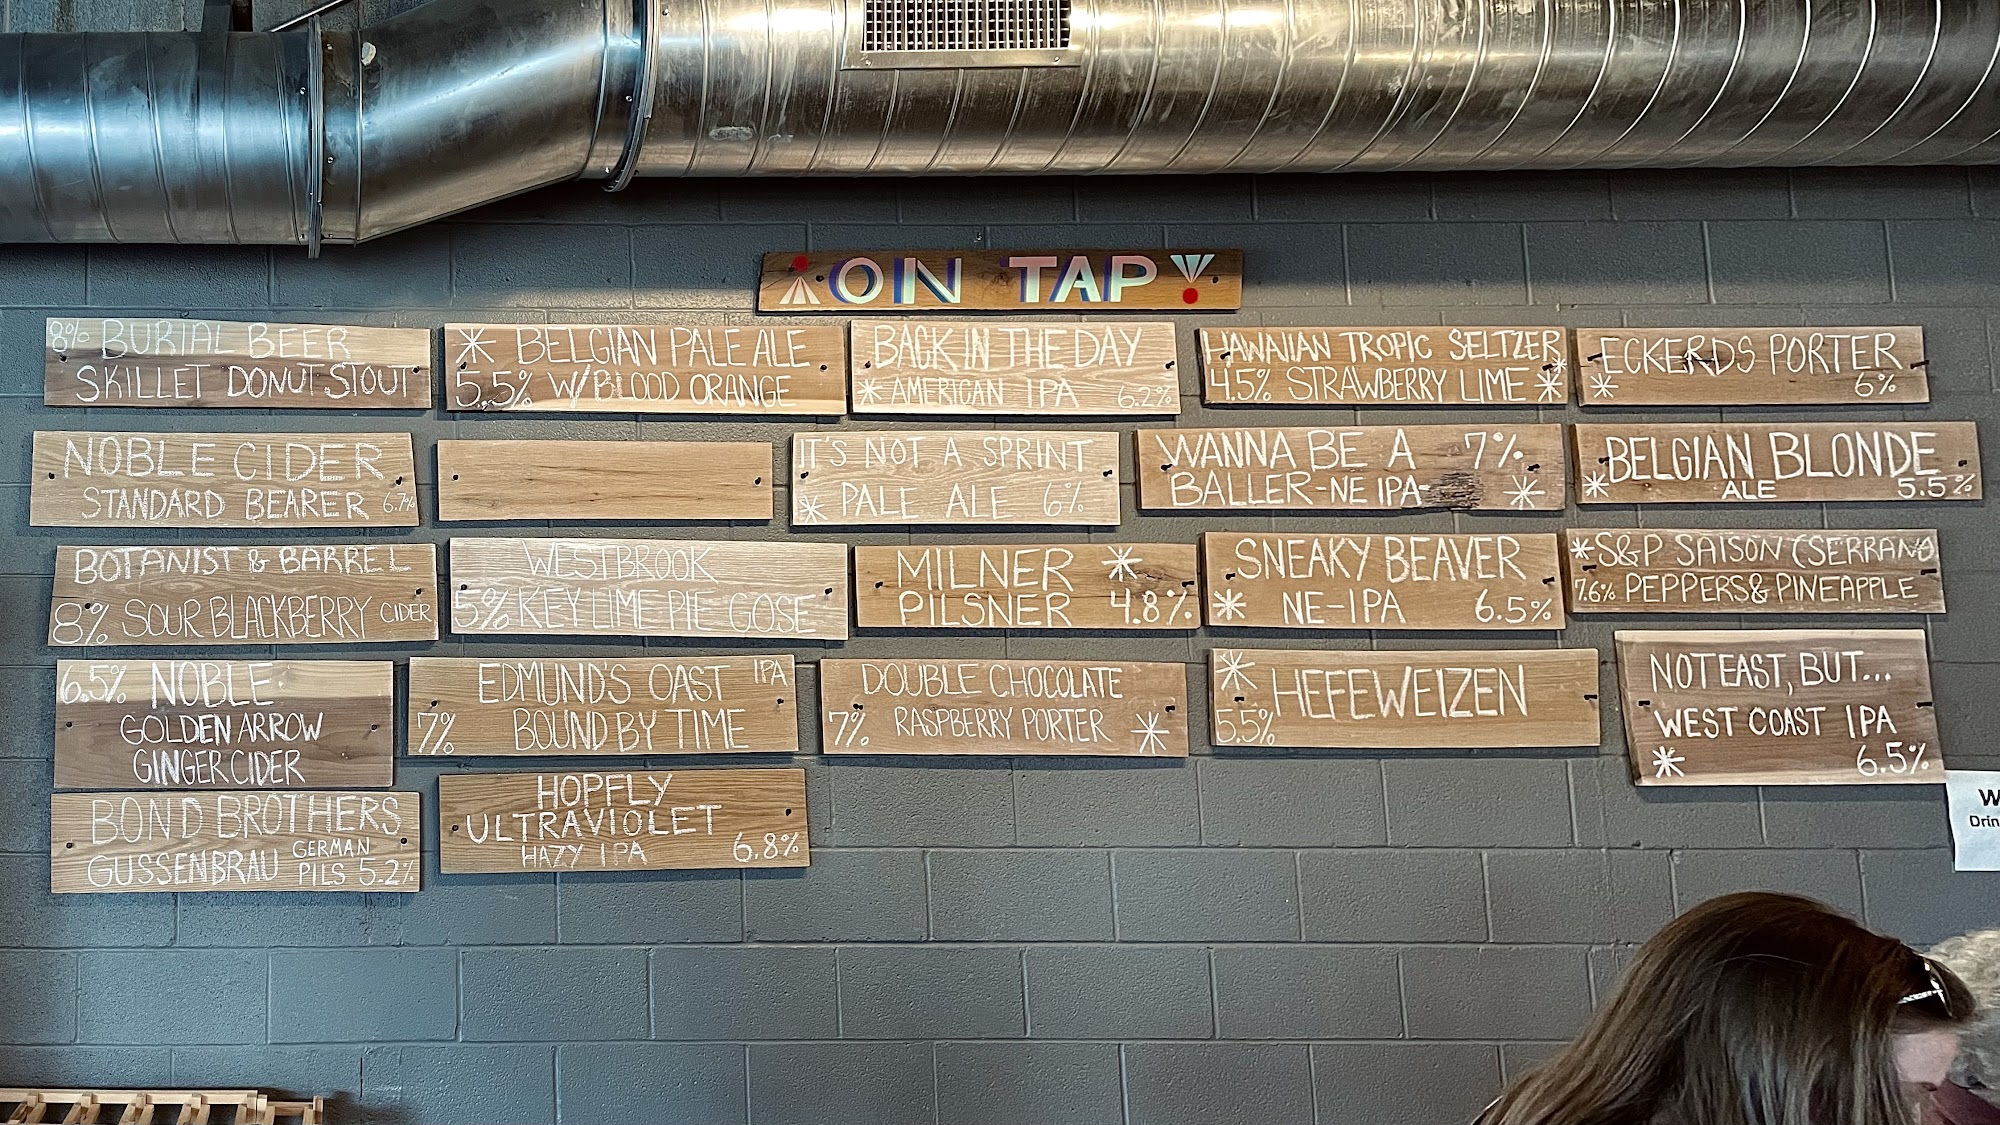 ON TAP
8% BURIAL BEER
SKILLET DONUT STOUT
* BELGIAN PALE ALE
5.5% W/ BLOOD ORANGE
BACK IN THE DAY
* AMERICAN IPA 6.2%
HAWAIIAN TROPIC SELTZER
4.5% STRAWBERRY LIME *
ECKERDS PORTER
* 6%
NOBLE CIDER
STANDARD BEARER 6.7%
IT'S NOT A SPRINT
* PALE ALE 6%
WANNA BE A 7%
BALLER-NE IPA- *
BELGIAN BLONDE
* ALE 5.5%
BOTANIST & BARREL
8% SOUR BLACKBERRY CIDER
WESTBROOK
5% KEY LIME PIE GOSE
MILNER *
PILSNER 4.8%
SNEAKY BEAVER
* NE-IPA 6.5%
*S&P SAISON (SERRANO
7.6% PEPPERS & PINEAPPLE
6.5% NOBLE
GOLDEN ARROW
GINGER CIDER
EDMUND'S OAST IPA
7% BOUND BY TIME
DOUBLE CHOCOLATE
7% RASPBERRY PORTER *
* HEFEWEIZEN
5.5%
NOT EAST, BUT...
WEST COAST IPA
* 6.5%
BOND BROTHERS
GUSSENBRAU GERMAN
PILS 5.2%
HOPFLY
ULTRAVIOLET
HAZY IPA 6.8%